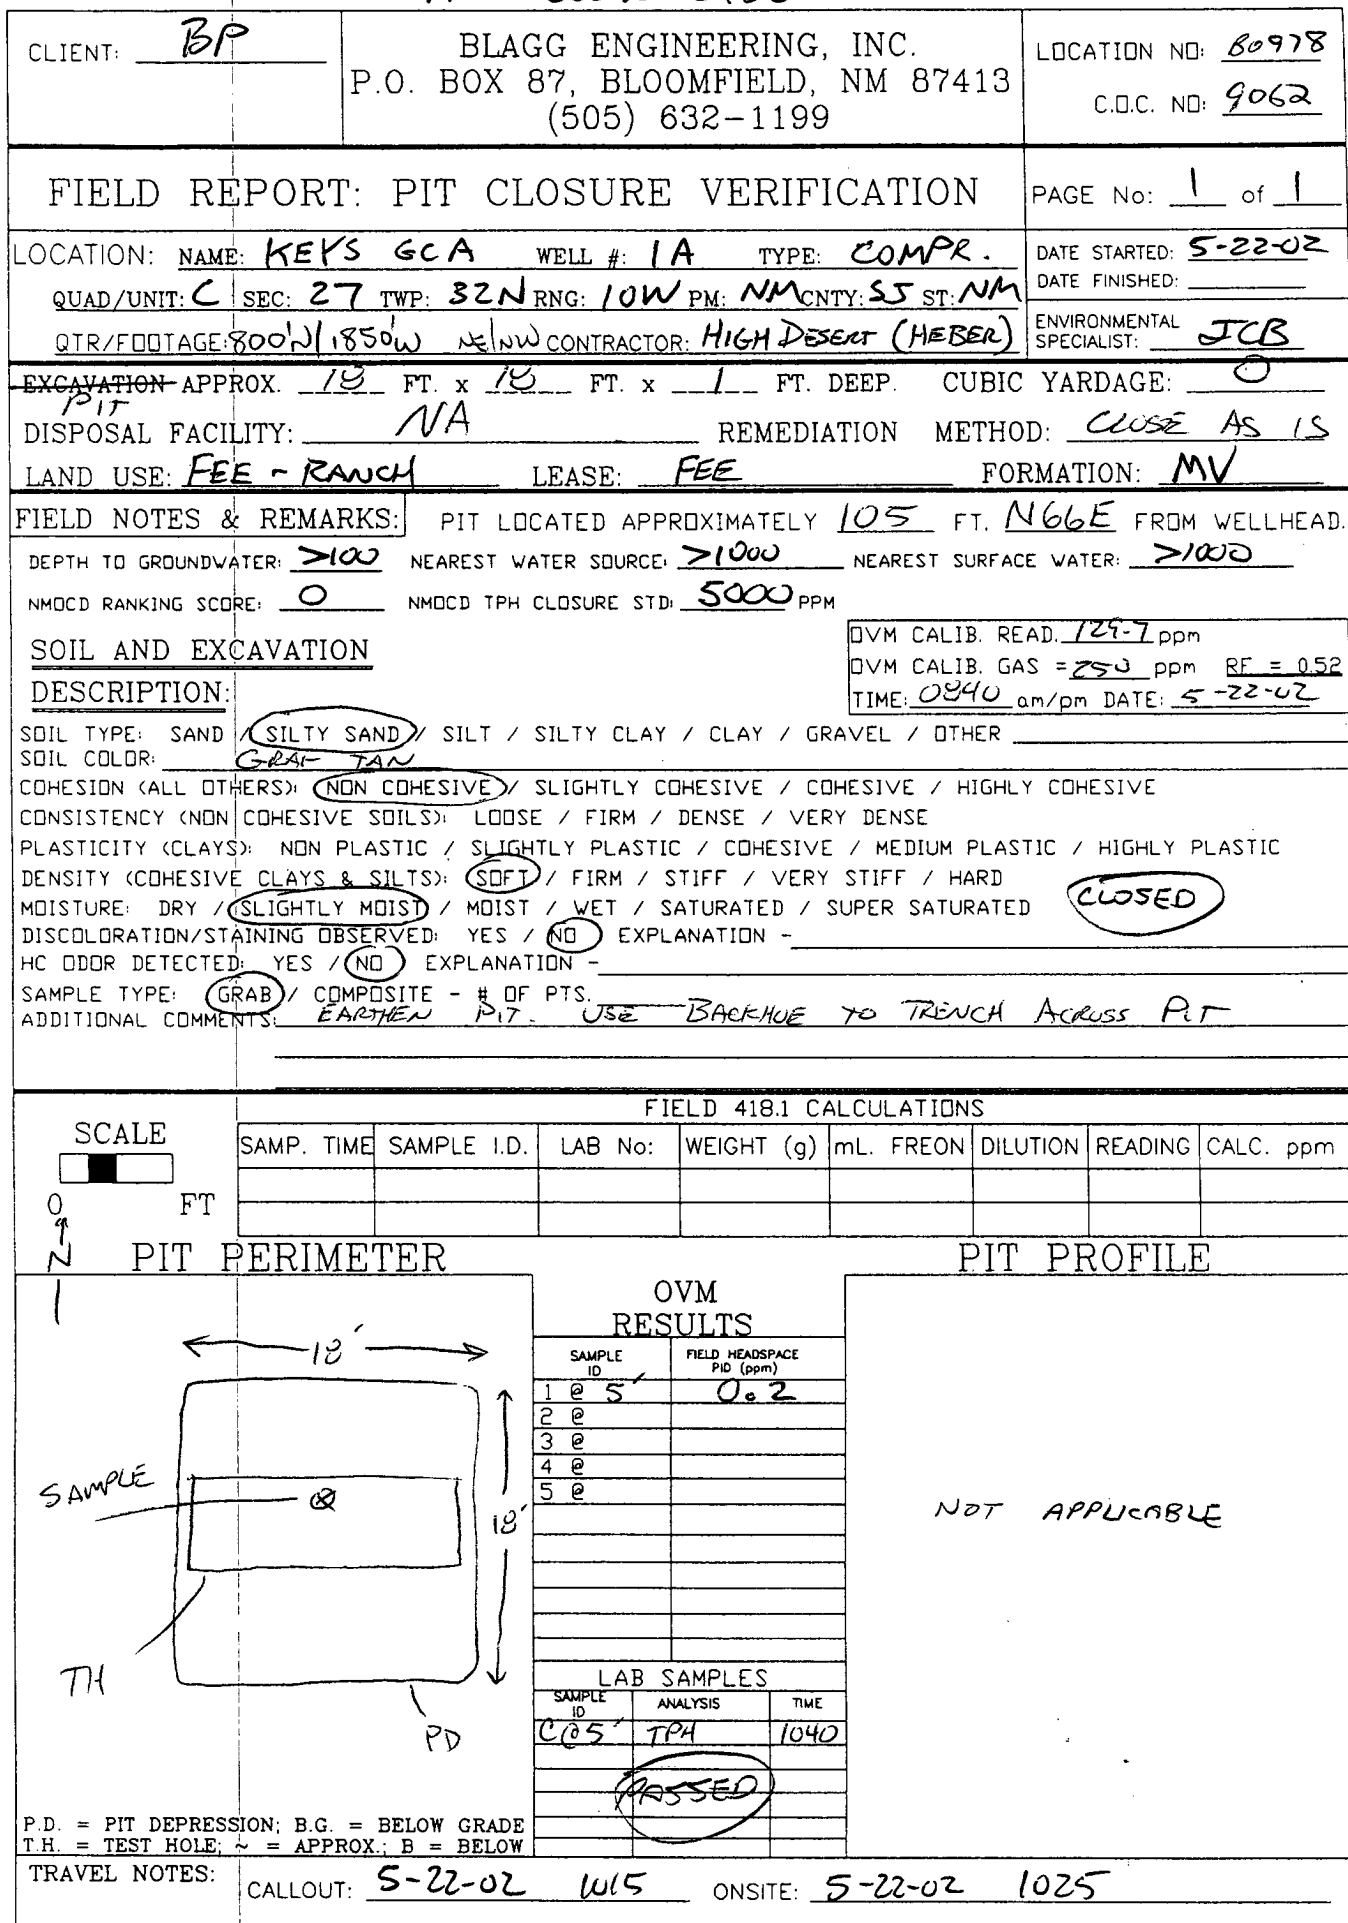 CLIENT: BP
BLAGG ENGINEERING, INC.
P.O. BOX 87, BLOOMFIELD, NM 87413
(505) 632-1199
LOCATION NO: B0978
C.O.C. NO: 9062
FIELD REPORT: PIT CLOSURE VERIFICATION
PAGE No: 1 of 1
LOCATION: NAME: KEYS GCA WELL #: 1A TYPE: COMPR.
QUAD/UNIT: C SEC: 27 TWP: 32N RNG: 10W PM: NM CNTY: SJ ST: NM
QTR/FOOTAGE: 800'N/1850'W NE/NW CONTRACTOR: HIGH DESERT (HEBER)
DATE STARTED: 5-22-02
DATE FINISHED:
ENVIRONMENTAL SPECIALIST: JCB
EXCAVATION APPROX. 18 FT. x 18 FT. x 1 FT. DEEP. CUBIC YARDAGE: 0
PIT
DISPOSAL FACILITY: NA REMEDIATION METHOD: CLOSE AS IS
LAND USE: FEE - RANCH LEASE: FEE FORMATION: MV
FIELD NOTES & REMARKS: PIT LOCATED APPROXIMATELY 105 FT. N66E FROM WELLHEAD.
DEPTH TO GROUNDWATER: >100 NEAREST WATER SOURCE: >1000 NEAREST SURFACE WATER: >1000
NMOCD RANKING SCORE: 0 NMOCD TPH CLOSURE STD: 5000 PPM
SOIL AND EXCAVATION
DESCRIPTION:
OVM CALIB. READ. 129.7 ppm
OVM CALIB. GAS = 250 ppm RF = 0.52
TIME: 0840 am/pm DATE: 5-22-02
SOIL TYPE: SAND / SILTY SAND / SILT / SILTY CLAY / CLAY / GRAVEL / OTHER
SOIL COLOR: GRAY TAN
COHESION (ALL OTHERS): NON COHESIVE / SLIGHTLY COHESIVE / COHESIVE / HIGHLY COHESIVE
CONSISTENCY (NON COHESIVE SOILS): LOOSE / FIRM / DENSE / VERY DENSE
PLASTICITY (CLAYS): NON PLASTIC / SLIGHTLY PLASTIC / COHESIVE / MEDIUM PLASTIC / HIGHLY PLASTIC
DENSITY (COHESIVE CLAYS & SILTS): SOFT / FIRM / STIFF / VERY STIFF / HARD
MOISTURE: DRY / SLIGHTLY MOIST / MOIST / WET / SATURATED / SUPER SATURATED CLOSED
DISCOLORATION/STAINING OBSERVED: YES / NO EXPLANATION -
HC ODOR DETECTED: YES / NO EXPLANATION -
SAMPLE TYPE: GRAB / COMPOSITE - # OF PTS.
ADDITIONAL COMMENTS: EARTHEN PIT. USE BACKHOE TO TRENCH ACROSS PIT
FIELD 418.1 CALCULATIONS
SCALE
0 FT
SAMP. TIME SAMPLE I.D. LAB No: WEIGHT (g) mL. FREON DILUTION READING CALC. ppm
N
PIT PERIMETER
PIT PROFILE
OVM
RESULTS
SAMPLE ID FIELD HEADSPACE PID (ppm)
1 @ 5' 0.2
2 @
3 @
4 @
5 @
18'
18'
SAMPLE
TH
PD
NOT APPLICABLE
LAB SAMPLES
SAMPLE ID ANALYSIS TIME
C@5' TPH 1040
PASSED
P.D. = PIT DEPRESSION; B.G. = BELOW GRADE
T.H. = TEST HOLE; ~ = APPROX.; B = BELOW
TRAVEL NOTES: CALLOUT: 5-22-02 ONSITE: 5-22-02 1025